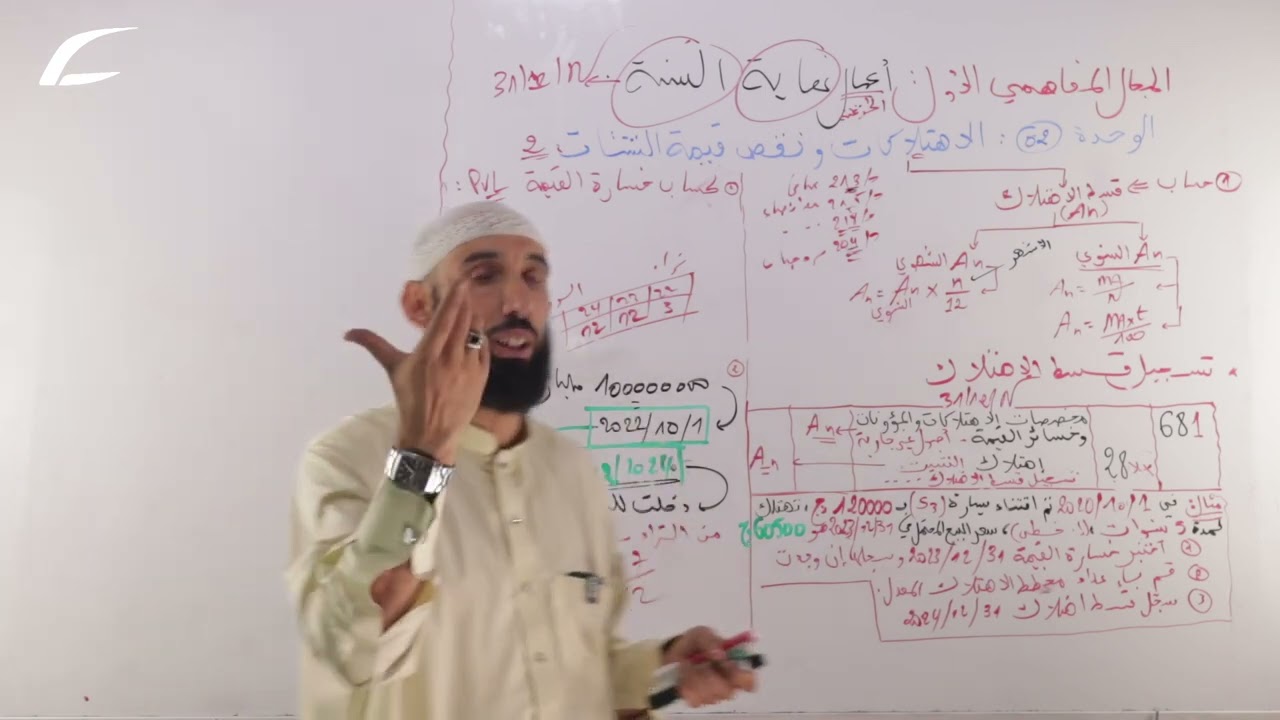 المجال المفاهيمي الأول: أعمال نهاية السنة ← 31/12/N
الوحدة 02: الاهتلاكات ونقص قيمة التثبيتات 2
① حساب ⇐ قسط الاهتلاك
(An)
An السنوي
An = MA/N
An = MA×t/100
An الشهري
الأشهر
An = An × n/12
السنوي
تسجيل قسط الإهتلاك
31/12/N
681 مخصصات الاهتلاكات والمؤونات
وخسائر القيمة - أصول غير جارية An
28xx اهتلاك التثبيت An
تسجيل قسط الاهتلاك
مثال: في 2020/10/1 تم اقتناء سيارة (S3) بـ 120000 دج، تهتلك
لمدة 5 سنوات (إ. خطي)، سعر البيع المحتمل في 2023/12/31 هو 60500 دج
① اختبر خسارة القيمة 2023/12/31 وسجلها إن وجدت
② قم بإعداد مخطط الاهتلاك المعدل.
③ سجل قسط اهتلاك 2024/12/31
① حساب خسارة القيمة PVL:
24 22 22
12 12 3
② 100000000
2022/10/1